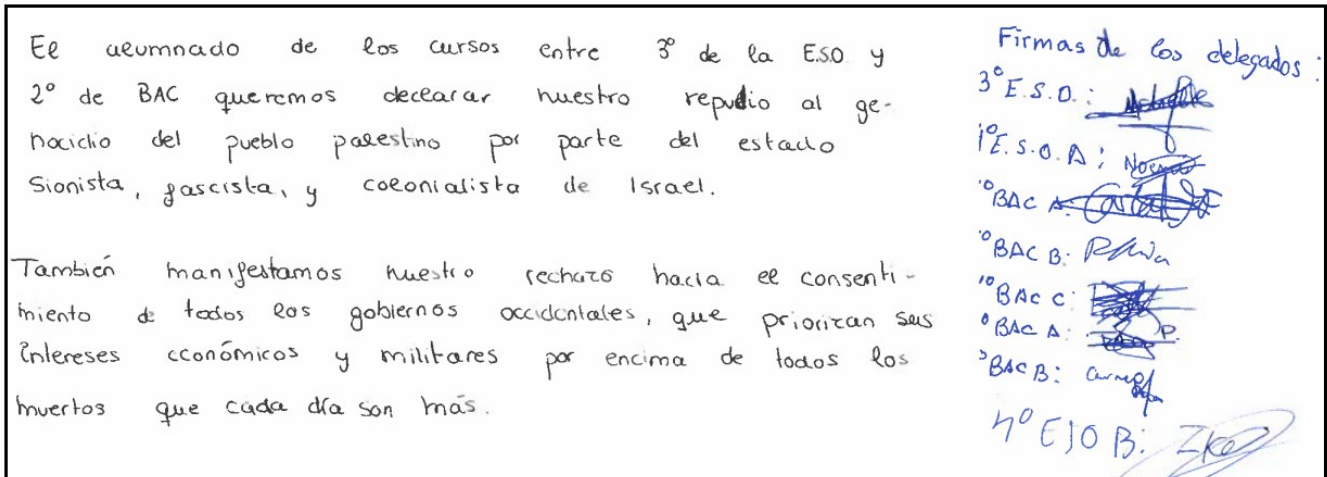 El alumnado de los cursos entre 3º de la E.S.O y
2º de BAC queremos declarar nuestro repudio al ge-
nocidio del pueblo palestino por parte del estado
Sionista, fascista, y colonialista de Israel.
También manifestamos nuestro rechazo hacia el consenti-
miento de todos los gobiernos occidentales, que priorizan sus
intereses económicos y militares por encima de todos los
muertos que cada día son más.
Firmas de los delegados:
3º E.S.O.:
1º E.S.O. A:
º BAC A:
º BAC B:
1º BAC C:
º BAC A: P.
º BAC B:
4º ESO B: